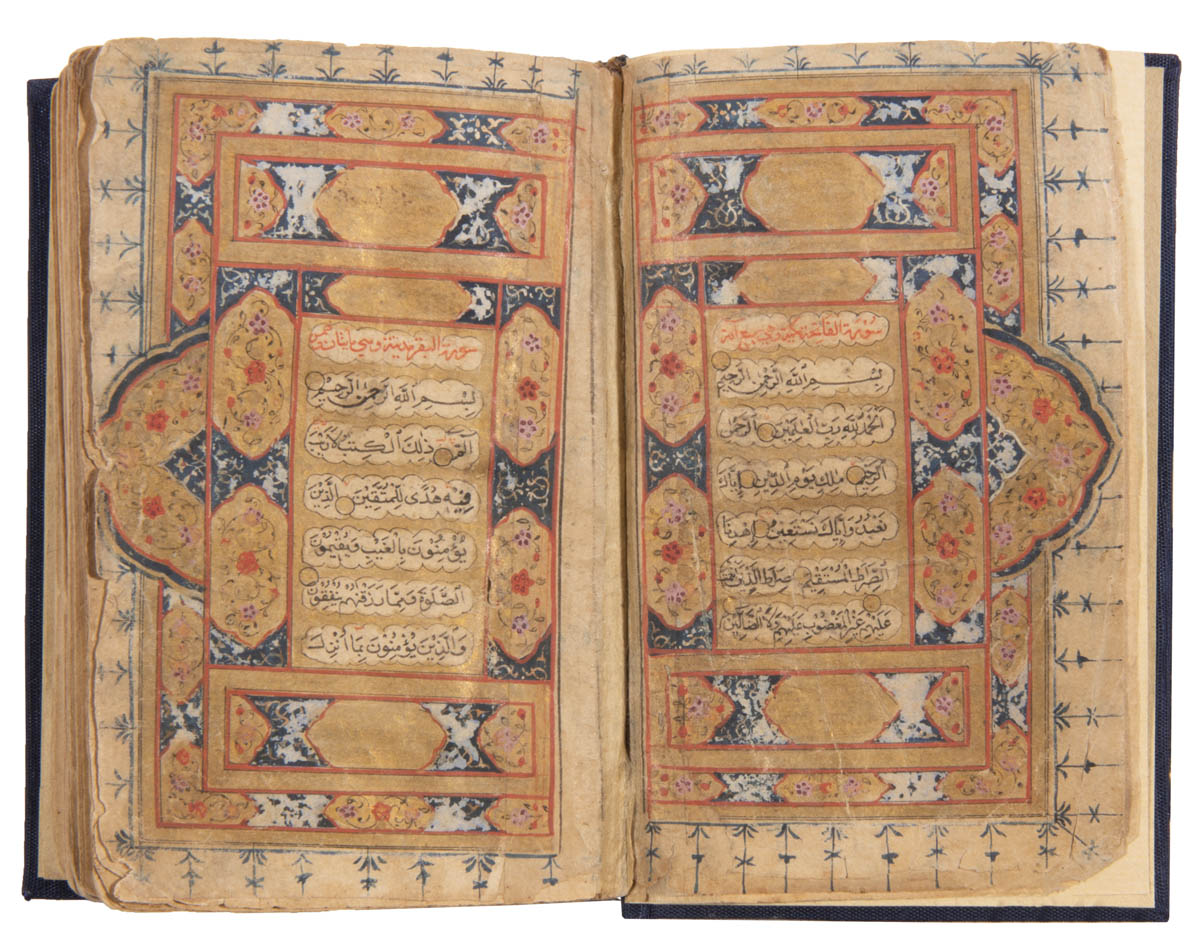 سورة الفاتحة مكية وهي سبع آية
بِسْمِ اللَّهِ الرَّحْمٰنِ الرَّحِيمِ
اَلْحَمْدُ لِلَّهِ رَبِّ الْعٰلَمِينَ الرَّحْمٰنِ
الرَّحِيمِ مٰلِكِ يَوْمِ الدِّينِ إِيَّاكَ
نَعْبُدُ وَإِيَّاكَ نَسْتَعِينُ إِهْدِنَا
الصِّرَاطَ الْمُسْتَقِيمَ صِرَاطَ الَّذِينَ
عَلَيْهِمْ غَيْرِ الْمَغْضُوبِ عَلَيْهِمْ وَلَا الضَّالِّينَ
سورة البقر مدينة وهي مايتان
بِسْمِ اللَّهِ الرَّحْمٰنِ الرَّحِيمِ
الٓمّٓ ذٰلِكَ الْكِتٰبُ لَا رَيْبَ
فِيهِ هُدًى لِلْمُتَّقِينَ الَّذِينَ
يُؤْمِنُونَ بِالْغَيْبِ وَيُقِيمُونَ
الصَّلٰوةَ وَمِمَّا رَزَقْنٰهُمْ يُنْفِقُونَ
وَالَّذِينَ يُؤْمِنُونَ بِمَا أُنْزِلَ